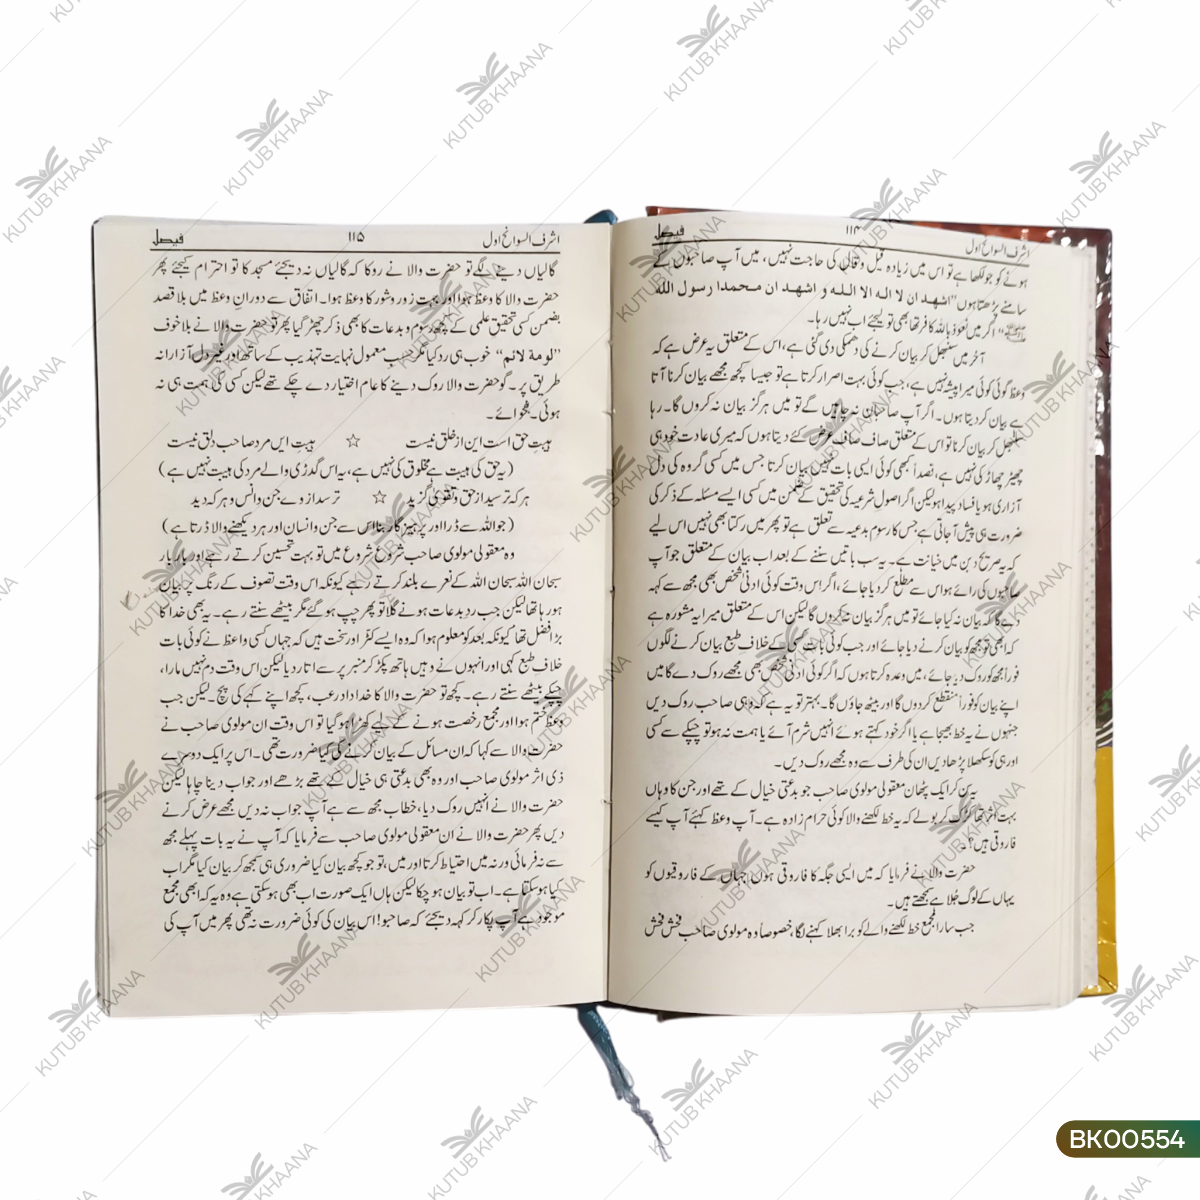 اشرف السوانح اول ۱۱۴ فیصل
ہونے کو جو لکھا ہے تو اس میں زیادہ قیل وقال کی حاجت نہیں، میں آپ صاحبوں کے
سامنے پڑھتا ہوں "اشهد ان لا اله الا الله و اشهد ان محمدا رسول الله
ﷺ" اگر میں نعوذ باللہ کافر تھا بھی تو لیجئے اب نہیں رہا۔
آخر میں سنبھل کر بیان کرنے کی دھمکی دی گئی ہے، اس کے متعلق یہ عرض ہے کہ
وعظ گوئی کوئی میرا پیشہ نہیں ہے، جب کوئی بہت اصرار کرتا ہے تو جیسا کچھ مجھے بیان کرنا آتا
ہے بیان کر دیتا ہوں۔ اگر آپ صاحبان نہ چاہیں گے تو میں ہرگز بیان نہ کروں گا۔ رہا
سنبھل کر بیان کرنا تو اس کے متعلق صاف صاف عرض کئے دیتا ہوں کہ میری عادت خود ہی
چھیڑ چھاڑ کی نہیں ہے، قصداً کبھی کوئی ایسی بات نہیں بیان کرتا جس میں کسی گروہ کی دل
آزاری ہو یا فساد پیدا ہو لیکن اگر اصول شرعیہ کی تحقیق کے ضمن میں کسی ایسے مسئلہ کے ذکر کی
ضرورت ہی پیش آجاتی ہے جس کا رسوم بدعیہ سے تعلق ہے تو پھر میں رکتا بھی نہیں اس لیے
کہ یہ صریح دین میں خیانت ہے۔ یہ سب باتیں سننے کے بعد اب بیان کے متعلق جو آپ
صاحبوں کی رائے ہو اس سے مطلع کر دیا جائے، اگر اس وقت کوئی ادنیٰ شخص بھی مجھ سے کہہ
دے گا کہ بیان نہ کیا جائے تو میں ہرگز بیان نہ کروں گا لیکن اس کے متعلق میرا یہ مشورہ ہے
کہ ابھی تو مجھ کو بیان کرنے دیا جائے اور جب کوئی بات کسی کے خلاف طبع بیان کرنے لگوں
فوراً مجھ کو روک دیا جائے، میں وعدہ کرتا ہوں کہ اگر کوئی ادنیٰ شخص بھی مجھے روک دے گا میں
اپنے بیان کو فوراً منقطع کر دوں گا اور بیٹھ جاؤں گا۔ بہتر تو یہ ہے کہ وہی صاحب روک دیں
جنہوں نے یہ خط بھیجا ہے یا اگر خود کہتے ہوئے انہیں شرم آئے یا ہمت نہ ہو تو چپکے سے کسی
اور ہی کو سکھلا پڑھا دیں ان کی طرف سے وہ مجھے روک دیں۔
یہ سن کر ایک پٹھان معقولی مولوی صاحب جو بدعتی خیال کے تھے اور جن کا وہاں
بہت اثر تھا کڑک کر بولے کہ یہ خط لکھنے والا کوئی حرام زادہ ہے۔ آپ وعظ کہئے آپ کیسے
فاروقی ہیں؟۔
حضرت والا نے فرمایا کہ میں ایسی جگہ کا فاروقی ہوں جہاں کے فاروقیوں کو
یہاں کے لوگ جُلاہے سمجھتے ہیں۔
جب سارا مجمع خط لکھنے والے کو برا بھلا کہنے لگا، خصوصاً وہ مولوی صاحب فحش فحش
اشرف السوانح اول ۱۱۵ فیصل
گالیاں دینے لگے تو حضرت والا نے روکا کہ گالیاں نہ دیجئے مسجد کا تو احترام کیجئے پھر
حضرت والا کا وعظ ہوا اور بہت زور و شور کا وعظ ہوا۔ اتفاق سے دورانِ وعظ میں بلا قصد
بضمن کسی تحقیق علمی کے کچھ رسوم و بدعات کا بھی ذکر چھڑ گیا پھر تو حضرت والا نے بلا خوف
"لومة لائم" خوب ہی رد کیا مگر حسب معمول نہایت تہذیب کے ساتھ اور غیر دل آزارانہ
طریق پر۔ گو حضرت والا روک دینے کا عام اختیار دے چکے تھے لیکن کسی کی ہمت ہی نہ
ہوئی۔ بفحوائے۔
ہیبتِ حق است ایں از خلق نیست ☆ ہیبت ایں مرد صاحب دلق نیست
(یہ حق کی ہیبت ہے مخلوق کی نہیں ہے، یہ اس گدڑی والے مرد کی ہیبت نہیں ہے)
ہر کہ ترسید از حق و تقویٰ گزید ☆ ترسد از وے جن و انس و ہر کہ دید
(جو اللہ سے ڈرا اور پرہیزگار بنا اس سے جن و انسان اور ہر دیکھنے والا ڈرتا ہے)
وہ معقولی مولوی صاحب شروع شروع میں تو بہت تحسین کرتے رہے اور بار بار
سبحان اللہ سبحان اللہ کے نعرے بلند کرتے رہے کیونکہ اس وقت تصوف کے رنگ پر بیان
ہو رہا تھا لیکن جب رد بدعات ہونے لگا تو پھر چپ ہو گئے مگر بیٹھے سنتے رہے۔ یہ بھی خدا کا
بڑا فضل تھا کیونکہ بعد کو معلوم ہوا کہ وہ ایسے کٹر اور سخت ہیں کہ جہاں کسی واعظ نے کوئی بات
خلاف طبع کہی اور انہوں نے وہیں ہاتھ پکڑ کر منبر پر سے اتار دیا لیکن اس وقت دم نہیں مارا،
چپکے بیٹھے سنتے رہے۔ کچھ تو حضرت والا کا خداداد رعب، کچھ اپنے کہے کی پچ۔ لیکن جب
وعظ ختم ہوا اور مجمع رخصت ہونے کے لیے کھڑا ہو گیا تو اس وقت ان مولوی صاحب نے
حضرت والا سے کہا کہ ان مسائل کے بیان کرنے کی کیا ضرورت تھی۔ اس پر ایک دوسرے
ذی اثر مولوی صاحب اور وہ بھی بدعتی ہی خیال کے تھے بڑھے اور جواب دینا چاہا لیکن
حضرت والا نے انہیں روک دیا، خطاب مجھ سے ہے آپ جواب نہ دیں مجھے عرض کرنے
دیں پھر حضرت والا نے ان معقولی مولوی صاحب سے فرمایا کہ آپ نے یہ بات پہلے مجھ
سے نہ فرمائی ورنہ میں احتیاط کرتا اور میں، تو جو کچھ بیان کیا ضروری ہی سمجھ کر بیان کیا مگر اب
کیا ہو سکتا ہے۔ اب تو بیان ہو چکا لیکن ہاں ایک صورت اب بھی ہو سکتی ہے وہ یہ کہ ابھی مجمع
موجود ہے آپ پکار کر کہہ دیجئے کہ صاحبو! اس بیان کی کوئی ضرورت نہ تھی پھر میں آپ کی
KUTUB KHAANA
BK00554